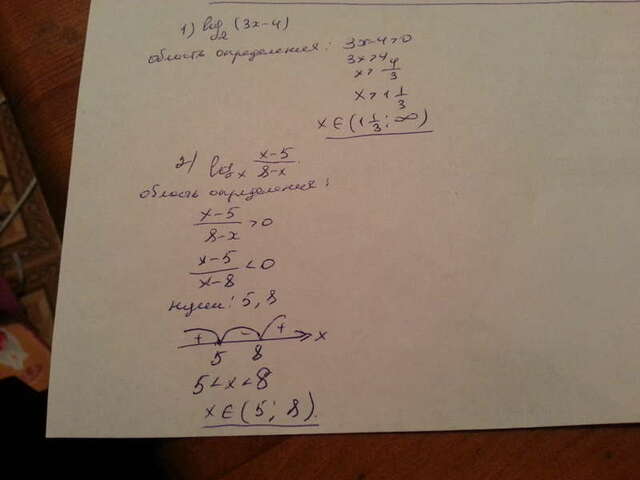 1) log₂ (3x-4)
область определения: 3x-4>0
3x>4
x>4/3
x>1 1/3
x∈(1 1/3; ∞)
2) logₓ (x-5)/(8-x).
область определения:
(x-5)/(8-x) >0
(x-5)/(x-8) <0
нули: 5, 8
+ - + x
5 8
5<x<8
x∈(5; 8)